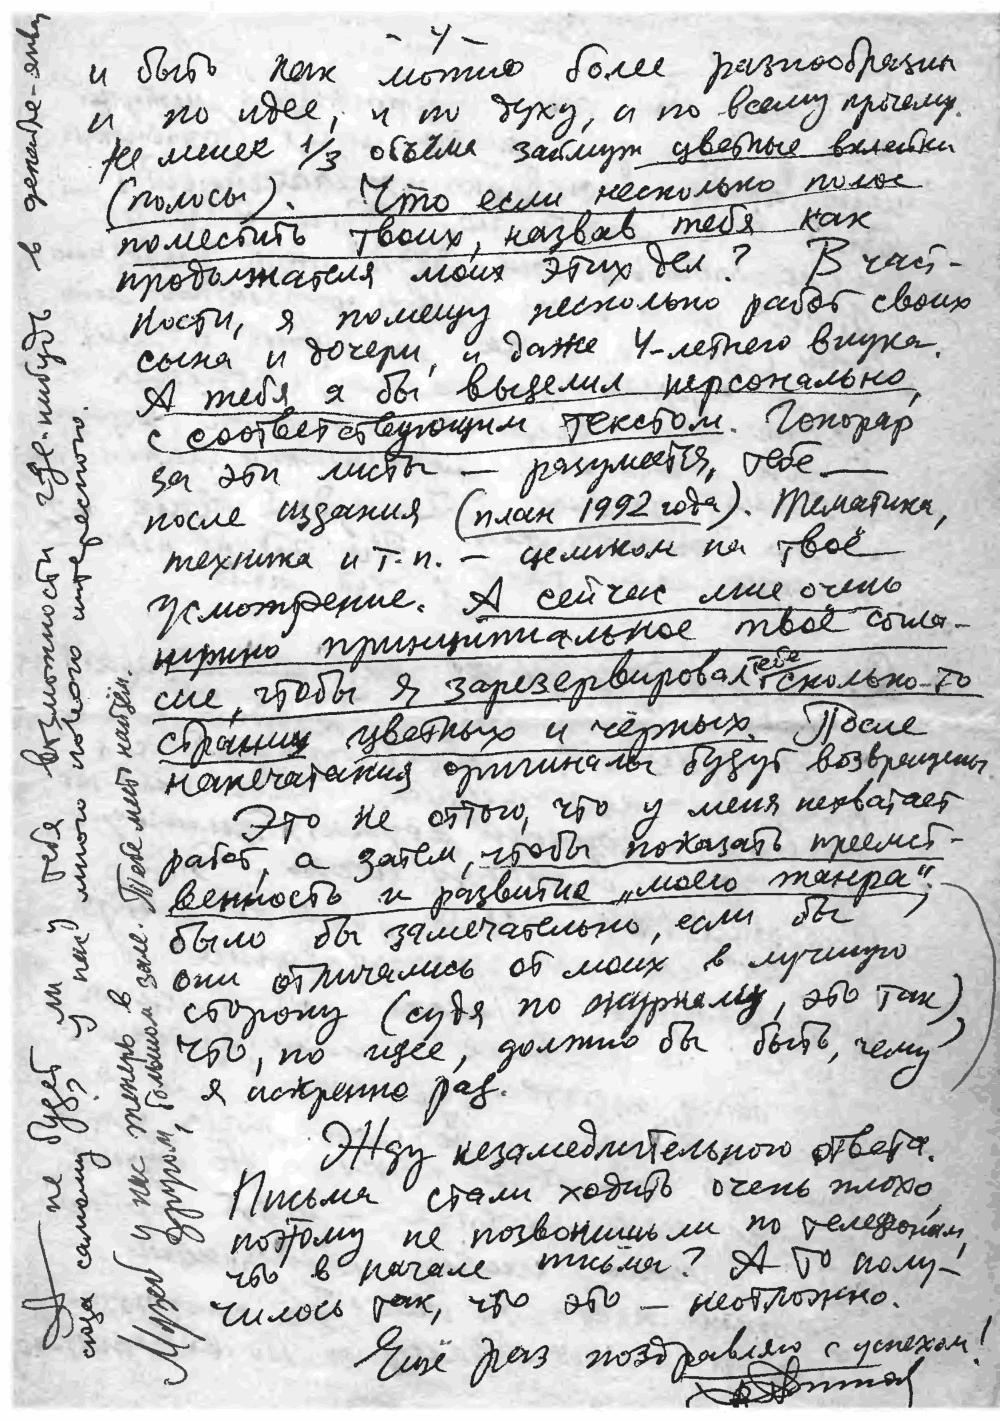 - 4 -
и быть как можно более разнообразны
и по идее, и по духу, и по всему прочему.
Не менее 1/3 объёма займут цветные вклейки
(полосы). Что если несколько полос
поместить твоих, назвав тебя как
продолжателя моих этих дел? В част-
ности, я помещу несколько работ своих
сына и дочери, и даже 4-летнего внука.
А тебя я бы выделил персонально,
с соответствующим текстом. Гонорар
за эти листы — разумеется, тебе —
после издания (план 1992 года). Тематика,
техника и т.п. — целиком на твоё
усмотрение. А сейчас мне очень
нужно принципиальное твоё согла-
сие, чтобы я зарезервировал тебе сколько-то
страниц цветных и чёрных. После
напечатания оригиналы будут возвращены.
Это не оттого, что у меня нехватает
работ, а затем, чтобы показать преемст-
венность и развитие „моего жанра".
было бы замечательно, если бы
они отличались от моих в лучшую
сторону (судя по журналу, это так),
что, по идее, должно бы быть, чему
я искренно рад.
Жду незамедлительного ответа.
Письма стали ходить очень плохо,
поэтому не позвонишь ли по телефонам,
что в начале письма? А то полу-
чилось так, что это — неотложно.
Ещё раз поздравляю с успехом!
А не будет ли у тебя возможности где-нибудь в декабре-янв
сюда самому? У нас много нового интересного.
Музей у нас теперь в
другом, большом зале. Тебе мест найдём.